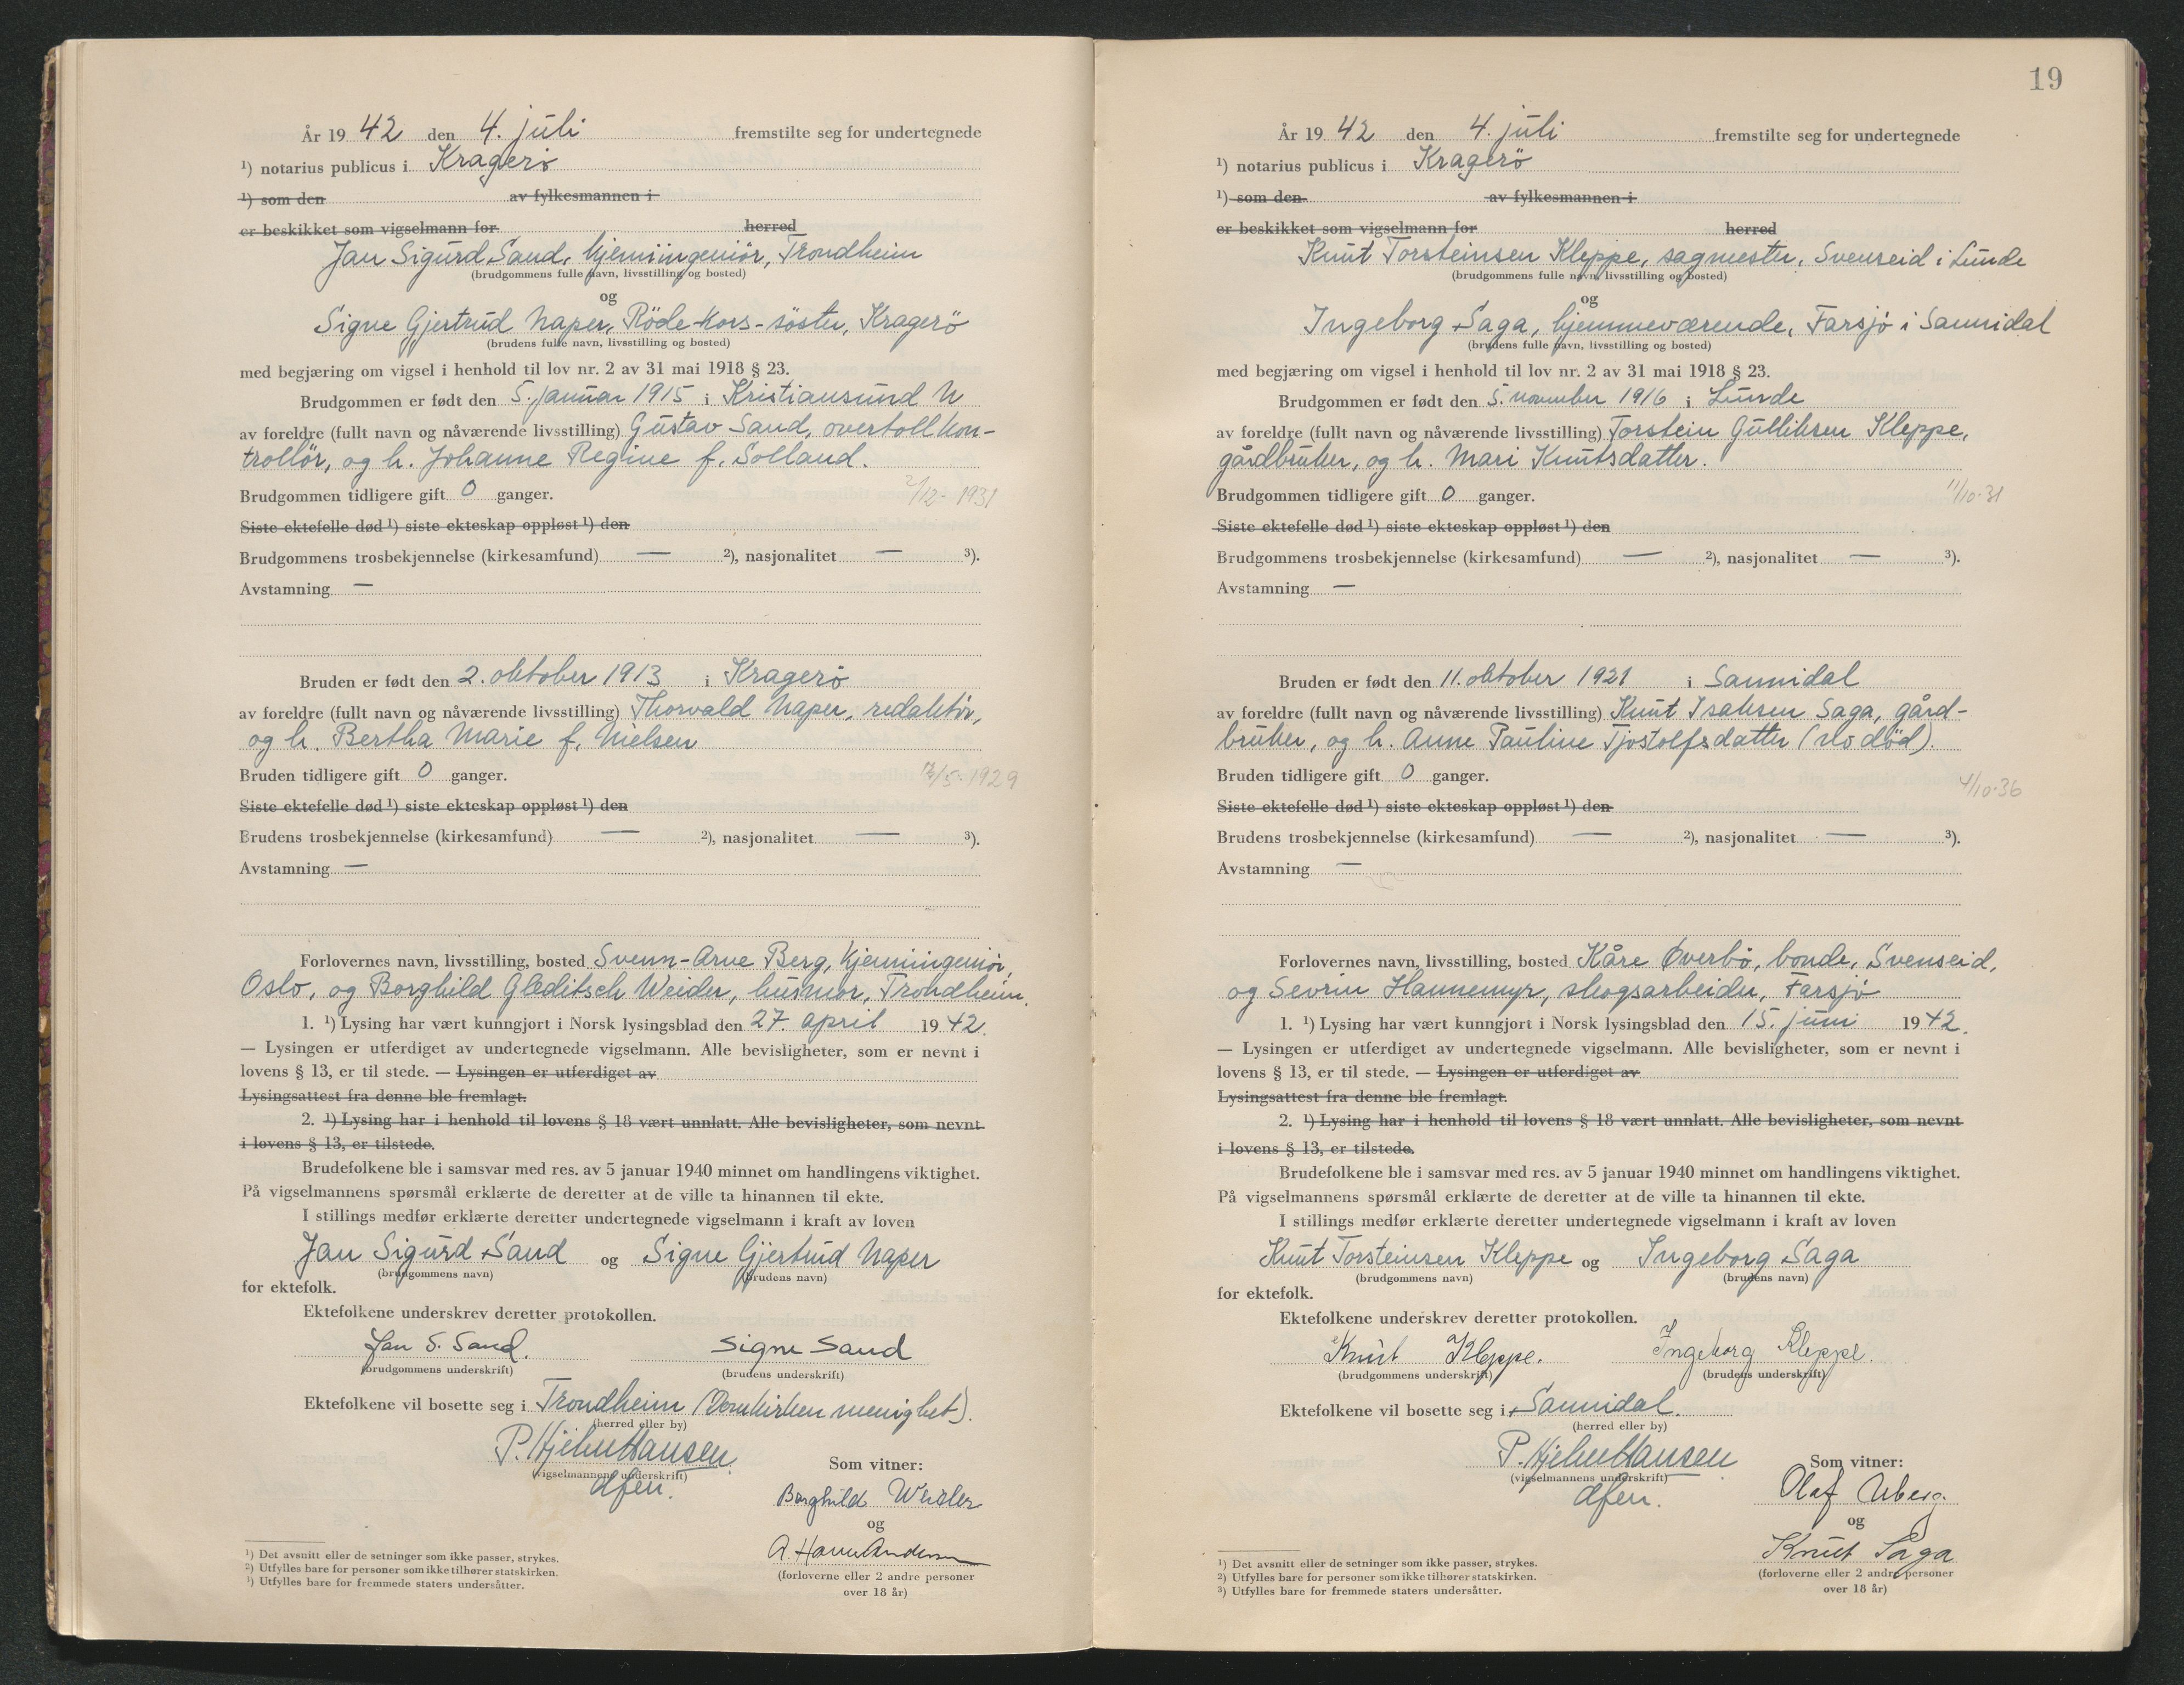 År 19 42 den 4. juli fremstilte seg for undertegnede
¹) notarius publicus i Kragerö
¹) som den av fylkesmannen i
er beskikket som vigselmann for herred
Jan Sigurd Sand, kjemiingeniör, Trondheim
(brudgommens fulle navn, livsstilling og bosted)
og
Signe Gjertrud Naper, Röde-kors-söster, Kragerö
(brudens fulle navn, livsstilling og bosted)
med begjæring om vigsel i henhold til lov nr. 2 av 31 mai 1918 § 23.
Brudgommen er født den 5. januar 1915 i Kristiansund N
av foreldre (fullt navn og nåværende livsstilling) Gustav Sand, overtollkon-
trollör, og h. Johanne Regine f. Solland.
Brudgommen tidligere gift 0 ganger. 2/12-1931
Siste ektefelle død ¹) siste ekteskap oppløst ¹) den
Brudgommens trosbekjennelse (kirkesamfund) — ²), nasjonalitet — ³).
Avstamning —
Bruden er født den 2. oktober 1913 i Kragerö
av foreldre (fullt navn og nåværende livsstilling) Thorvald Naper, redaktör,
og h. Bertha Marie f. Nielsen
Bruden tidligere gift 0 ganger. /5-1929
Siste ektefelle død ¹) siste ekteskap oppløst ¹) den
Brudens trosbekjennelse (kirkesamfund) — ²), nasjonalitet — ³).
Avstamning —
Forlovernes navn, livsstilling, bosted Svenn-Arne Berg, kjemiingeniör,
Oslo, og Borghild Gleditsch Weider, husmor, Trondheim.
1. ¹) Lysing har vært kunngjort i Norsk lysingsblad den 27. april 19 42.
— Lysingen er utferdiget av undertegnede vigselmann. Alle bevisligheter, som er nevnt i
lovens § 13, er til stede. — Lysingen er utferdiget av
Lysingsattest fra denne ble fremlagt.
2. ¹) Lysing har i henhold til lovens § 18 vært unnlatt. Alle bevisligheter, som nevnt
i lovens § 13, er tilstede.
Brudefolkene ble i samsvar med res. av 5 januar 1940 minnet om handlingens viktighet.
På vigselmannens spørsmål erklærte de deretter at de ville ta hinannen til ekte.
I stillings medfør erklærte deretter undertegnede vigselmann i kraft av loven
Jan Sigurd Sand og Signe Gjertrud Naper
(brudgommens navn) (brudens navn)
for ektefolk.
Ektefolkene underskrev deretter protokollen.
Jan S. Sand. Signe Sand
(brudgommens underskrift) (brudens underskrift)
Ektefolkene vil bosette seg i Trondheim (Domkirken menighet).
(herred eller by)
P. Hjelm Hansen
(vigselmannens underskrift)
dfm.
Som vitner:
Borghild Weider
og
(forloverne eller 2 andre personer
over 18 år)
¹) Det avsnitt eller de setninger som ikke passer, strykes.
²) Utfylles bare for personer som ikke tilhører statskirken.
³) Utfylles bare for fremmede staters undersåtter.
19
År 19 42 den 4. juli fremstilte seg for undertegnede
¹) notarius publicus i Kragerö
¹) som den av fylkesmannen i
er beskikket som vigselmann for herred
Knut Torsteinsen Kleppe, sagmester, Svenseid i Lunde
(brudgommens fulle navn, livsstilling og bosted)
og
Ingeborg Saga, hjemmeværende, Farsjö i Sannidal
(brudens fulle navn, livsstilling og bosted)
med begjæring om vigsel i henhold til lov nr. 2 av 31 mai 1918 § 23.
Brudgommen er født den 5. november 1916 i Lunde
av foreldre (fullt navn og nåværende livsstilling) Torstein Gulliksen Kleppe,
gårdbruker, og h. Mari Knutsdatter.
Brudgommen tidligere gift 0 ganger. 11/10-31
Siste ektefelle død ¹) siste ekteskap oppløst ¹) den
Brudgommens trosbekjennelse (kirkesamfund) — ²), nasjonalitet — ³).
Avstamning —
Bruden er født den 11. oktober 1921 i Sannidal
av foreldre (fullt navn og nåværende livsstilling) Knut Isaksen Saga, gård-
bruker, og h. Anne Pauline Tjostolfsdatter (no död).
Bruden tidligere gift 0 ganger. 4/10-36
Siste ektefelle død ¹) siste ekteskap oppløst ¹) den
Brudens trosbekjennelse (kirkesamfund) — ²), nasjonalitet — ³).
Avstamning —
Forlovernes navn, livsstilling, bosted Kåre Överbö, bonde, Svenseid,
og Sevrin Hannemyr, skogsarbeider, Farsjö
1. ¹) Lysing har vært kunngjort i Norsk lysingsblad den 15. juni 19 42.
— Lysingen er utferdiget av undertegnede vigselmann. Alle bevisligheter, som er nevnt i
lovens § 13, er til stede. — Lysingen er utferdiget av
Lysingsattest fra denne ble fremlagt.
2. ¹) Lysing har i henhold til lovens § 18 vært unnlatt. Alle bevisligheter, som nevnt
i lovens § 13, er tilstede.
Brudefolkene ble i samsvar med res. av 5 januar 1940 minnet om handlingens viktighet.
På vigselmannens spørsmål erklærte de deretter at de ville ta hinannen til ekte.
I stillings medfør erklærte deretter undertegnede vigselmann i kraft av loven
Knut Torsteinsen Kleppe og Ingeborg Saga
(brudgommens navn) (brudens navn)
for ektefolk.
Ektefolkene underskrev deretter protokollen.
Knut Kleppe. Ingeborg Kleppe.
(brudgommens underskrift) (brudens underskrift)
Ektefolkene vil bosette seg i Sannidal.
(herred eller by)
P. Hjelm Hansen
(vigselmannens underskrift)
dfm.
Som vitner:
Olaf Uberg
og
Knut Saga
(forloverne eller 2 andre personer
over 18 år)
¹) Det avsnitt eller de setninger som ikke passer, strykes.
²) Utfylles bare for personer som ikke tilhører statskirken.
³) Utfylles bare for fremmede staters undersåtter.